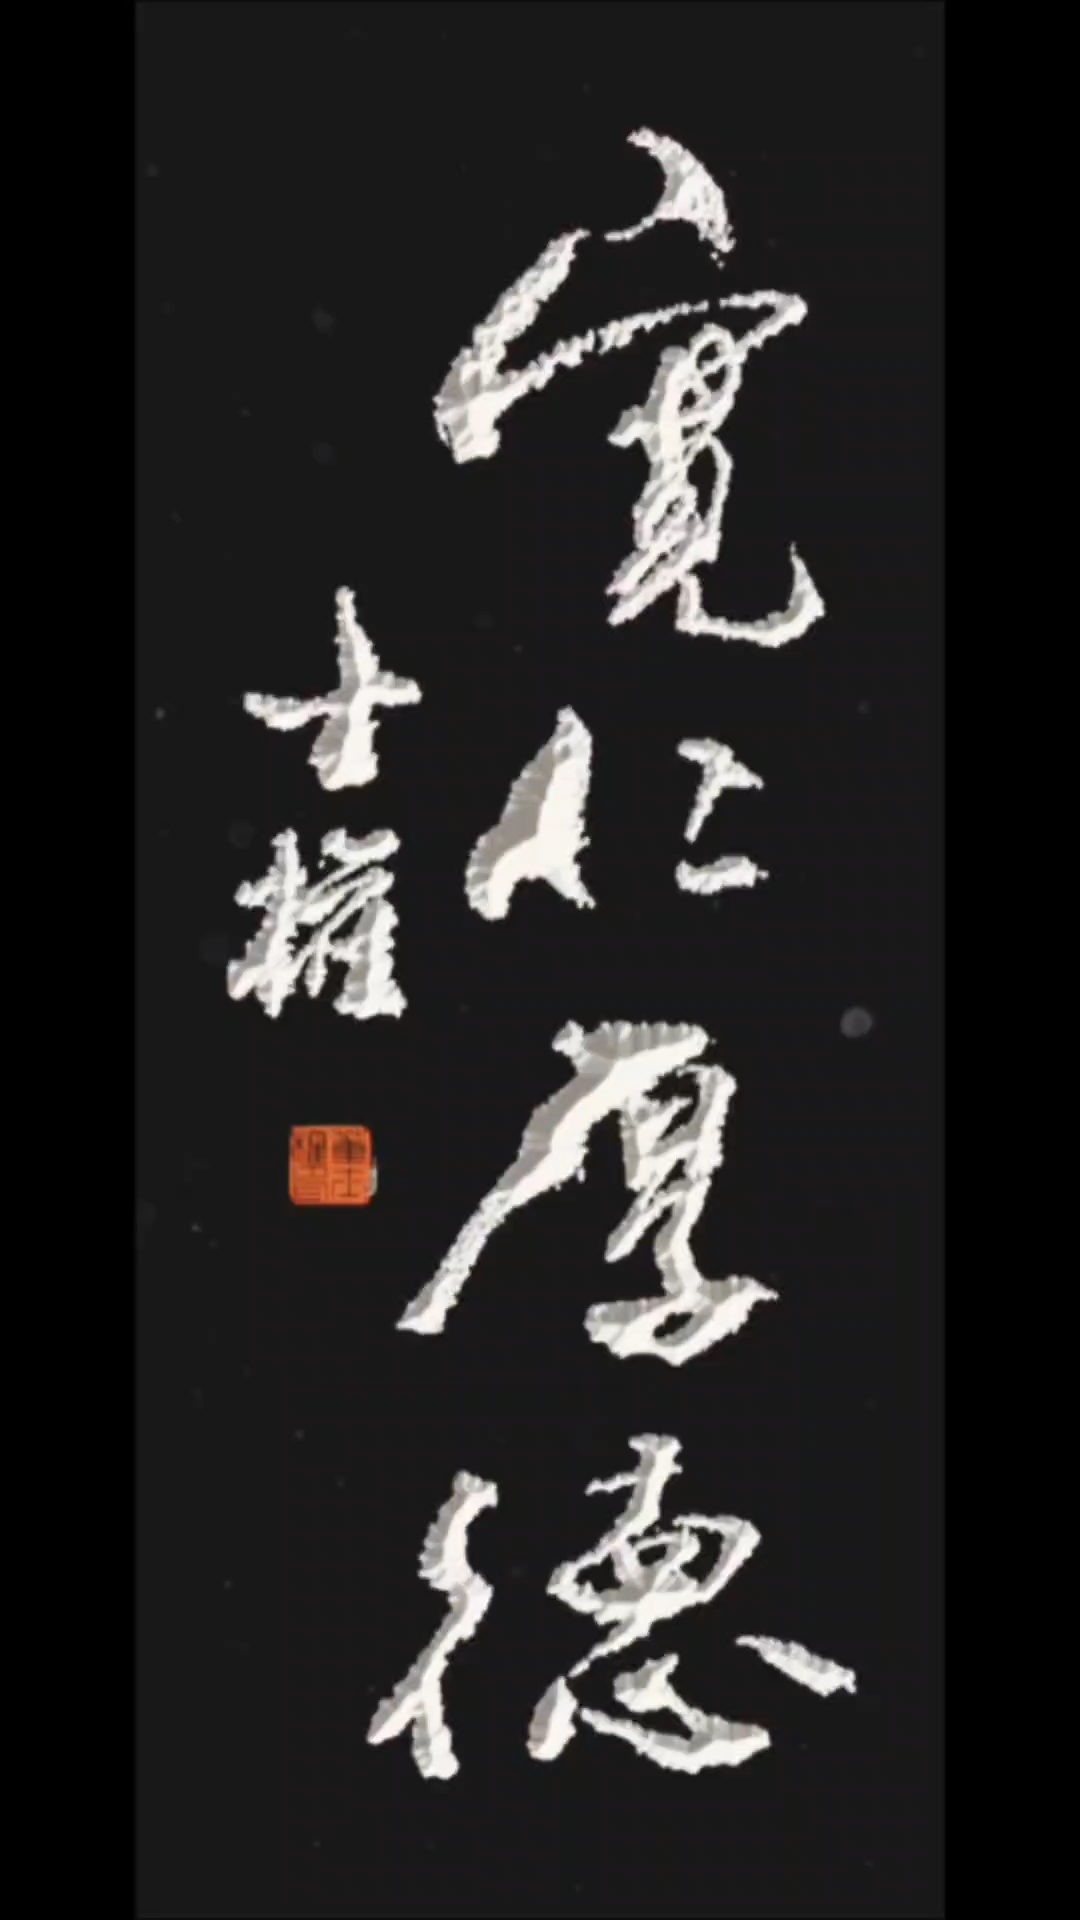 寬仁厚德
士權